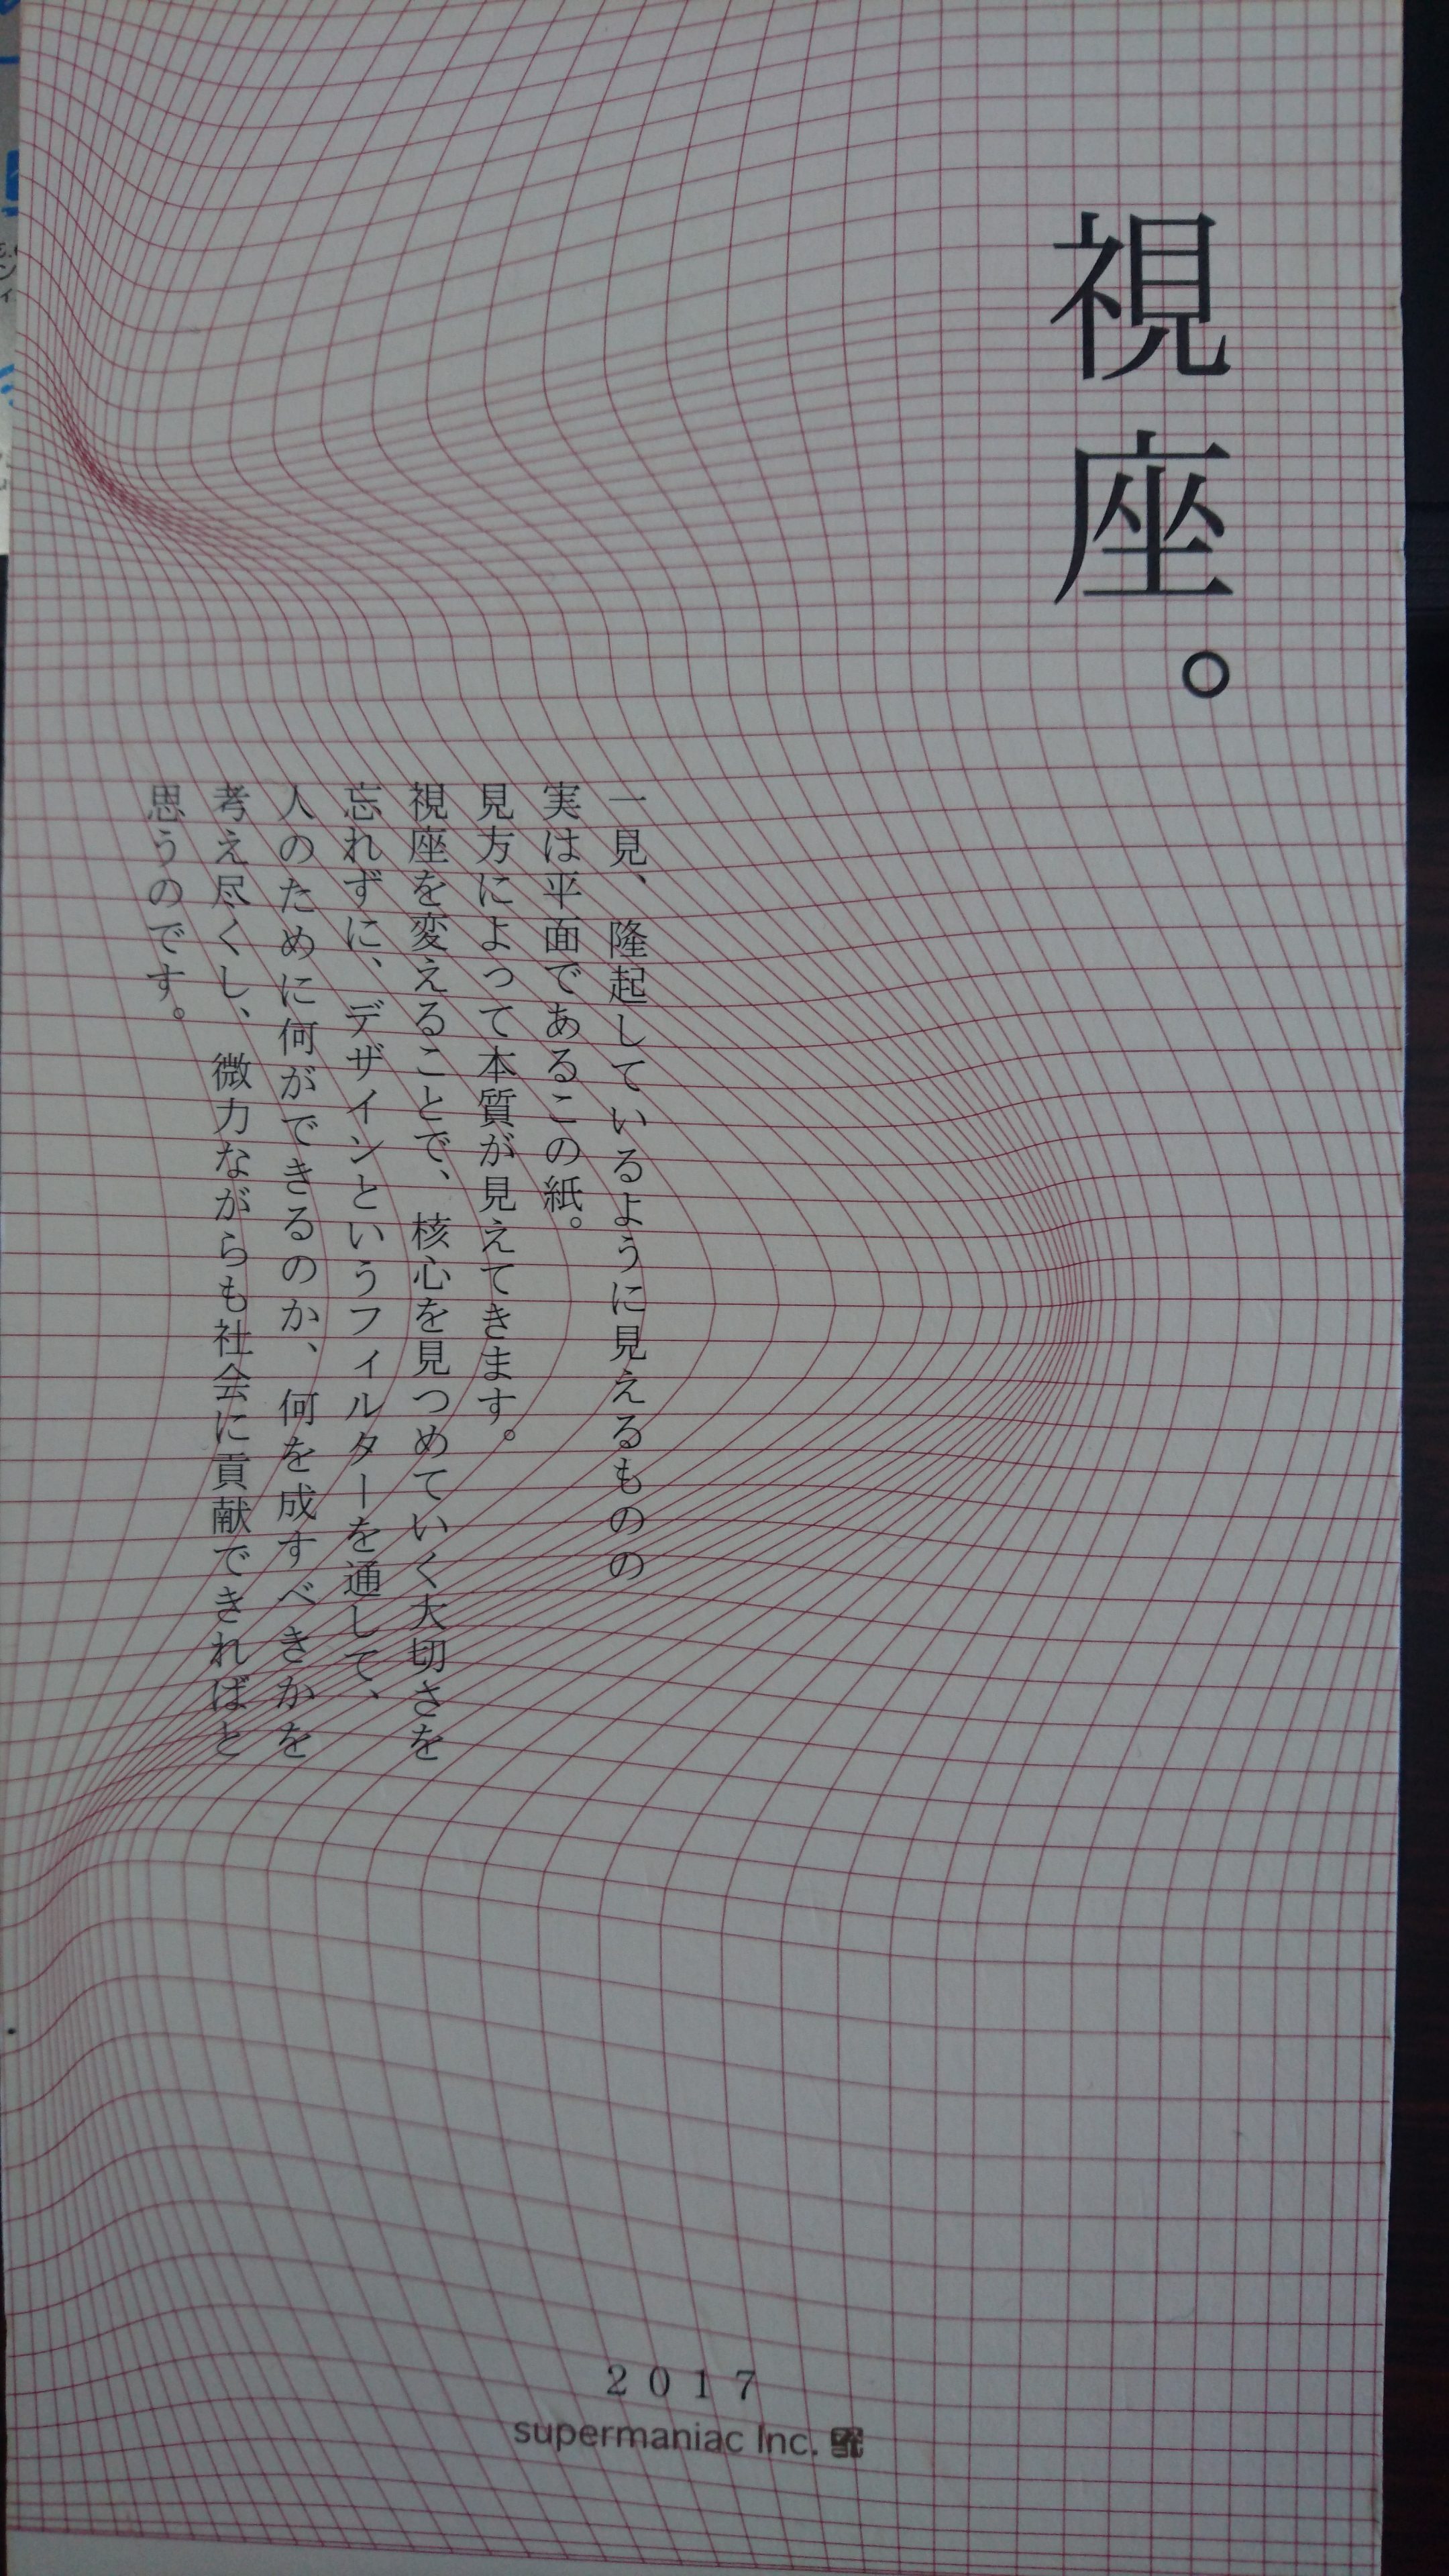 視座。
一見、隆起しているように見えるものの
実は平面であるこの紙。
見方によって本質が見えてきます。
視座を変えることで、核心を見つめていく大切さを
忘れずに、デザインというフィルターを通して、
人のために何ができるのか、何を成すべきかを
考え尽くし、微力ながらも社会に貢献できればと
思うのです。
2017
supermaniac Inc.